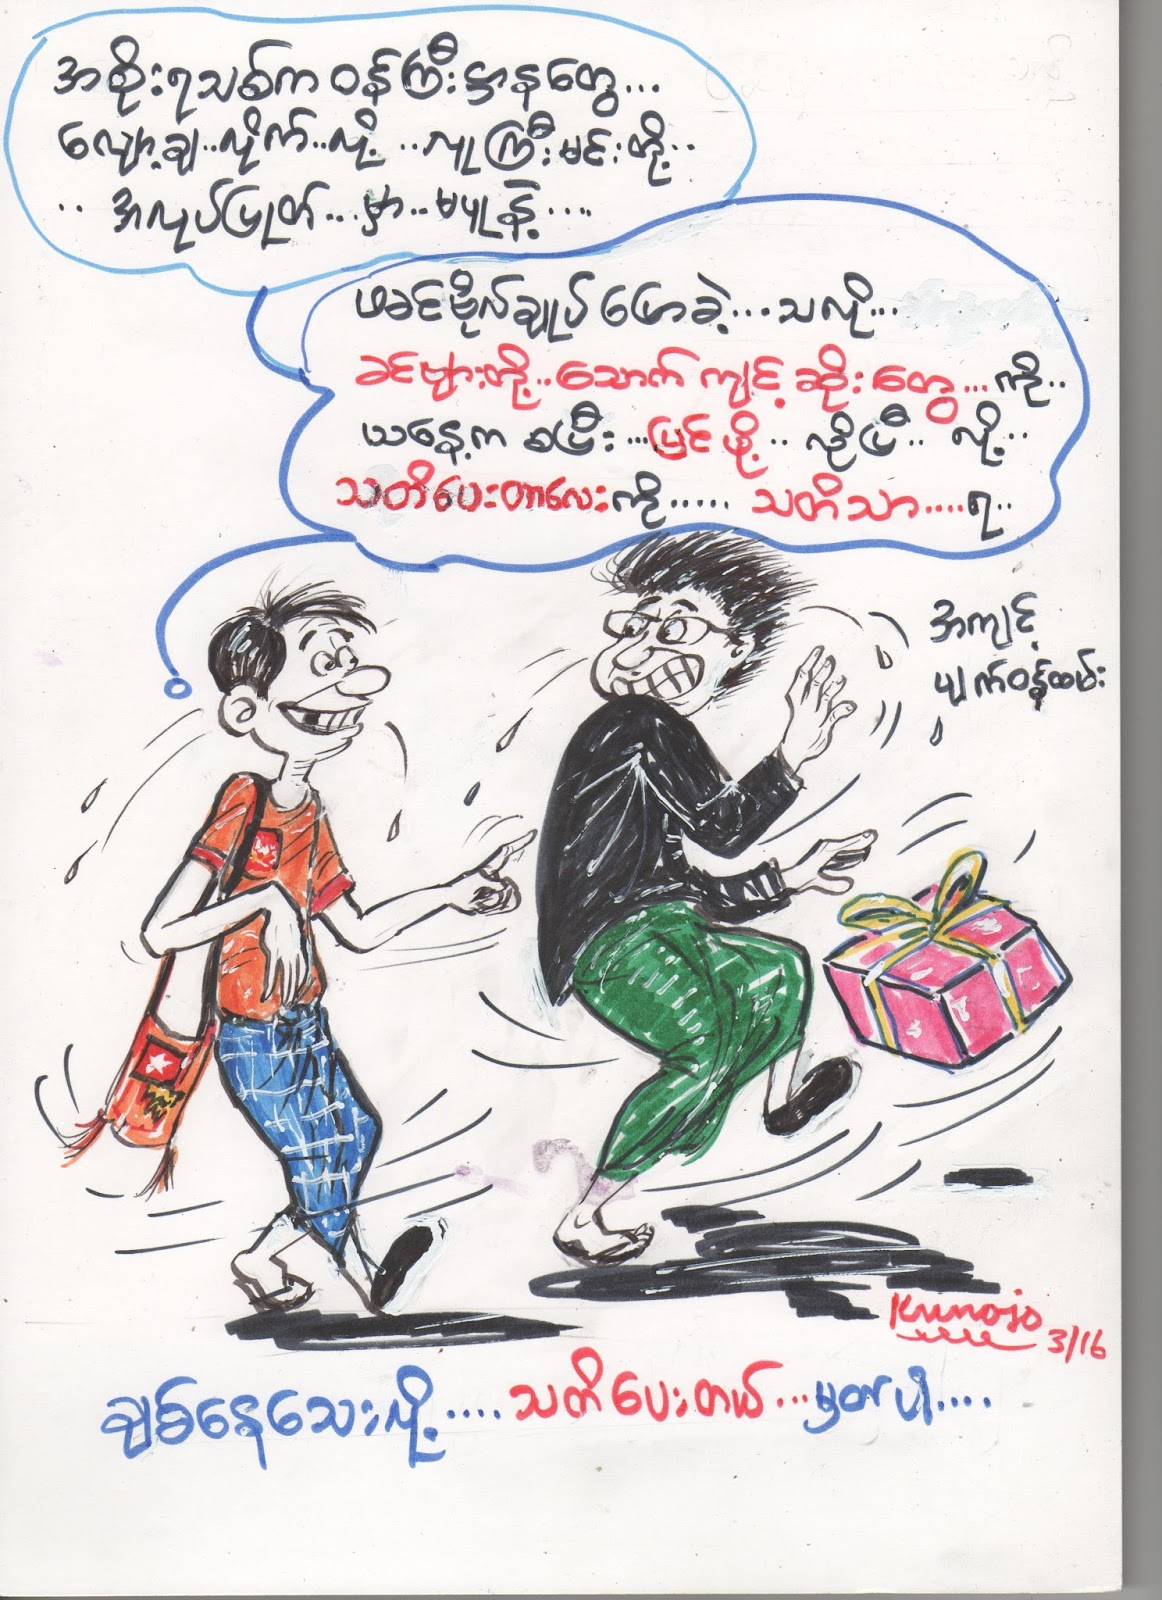 အစိုးရသစ်က ဝန်ကြီးဌာနတွေ...
လျှော့ချ..လိုက်..လို့ ..လူကြီးမင်းတို့..
.. အလုပ်ပြုတ်...မှာ..မပူနဲ့....
ဖခင်ဗိုလ်ချုပ် ပြောခဲ့...သလို...
ခင်ဗျားတို့..သောက်ကျင့်ဆိုးတွေ...ကို..
ယနေ့က စပြီး...ပြင်ဖို့.. လိုပြီ.. လို့...
သတိပေးတာလေးကို..... သတိသာ....ရ..
အကျင့်
ပျက်ဝန်ထမ်း
Kunojo
3/16
ချစ်နေသေးလို့....သတိပေးတယ်...မှတ်ပါ....